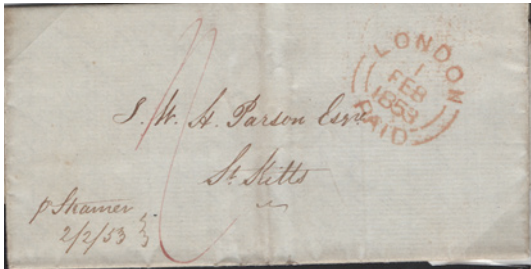 LONDON
1
FEB
1853
PAID
S. W. A. Parson Esqre
St. Kitts
p Steamer
2/2/53